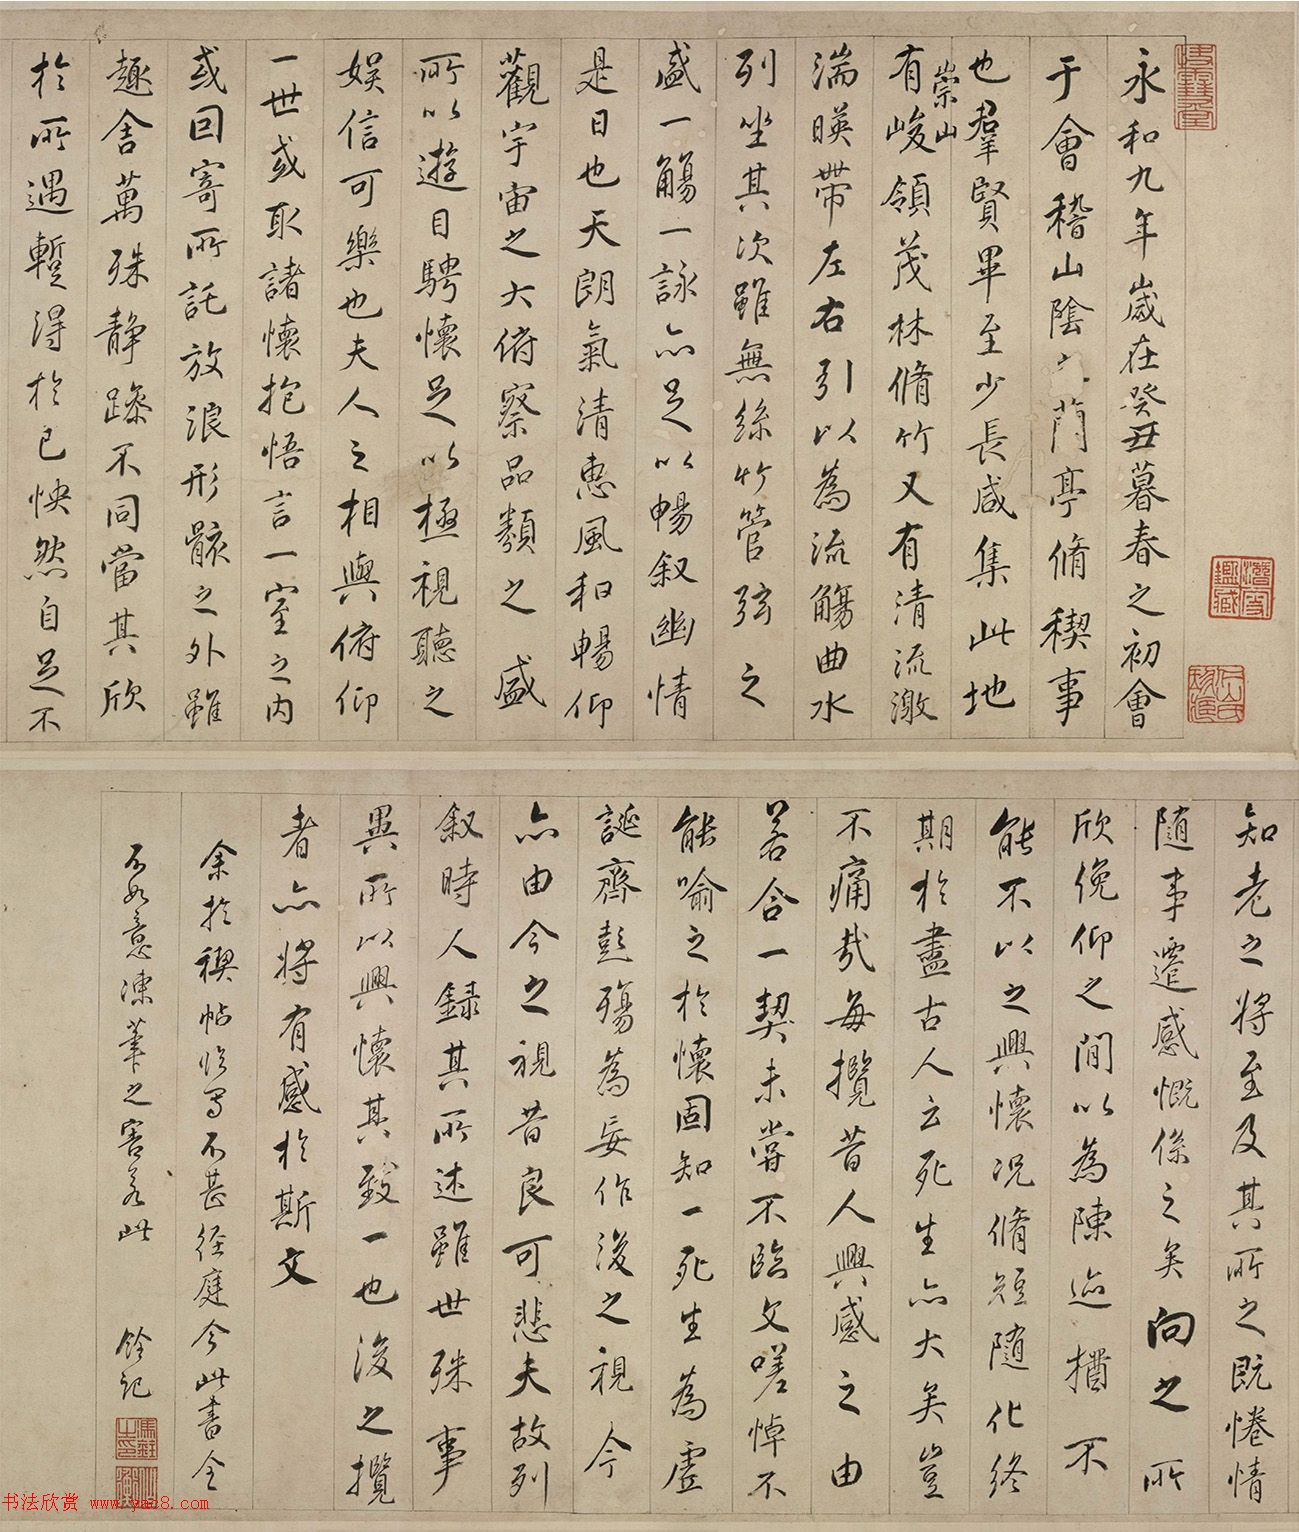 永和九年歲在癸丑暮春之初會
于會稽山陰之蘭亭脩稧事
也羣賢畢至少長咸集此地
有崇山峻領茂林脩竹又有清流激
湍暎帶左右引以為流觴曲水
列坐其次雖無絲竹管弦之
盛一觴一詠亦足以暢叙幽情
是日也天朗氣清惠風和暢仰
觀宇宙之大俯察品類之盛
所以遊目騁懷足以極視聽之
娛信可樂也夫人之相與俯仰
一世或取諸懷抱悟言一室之內
或回寄所託放浪形骸之外雖
趣舍萬殊静躁不同當其欣
於所遇蹔得於己怏然自足不
知老之將至及其所之既惓情
隨事遷感慨係之矣向之所
欣俛仰之間以為陳迹猶不
能不以之興懷況脩短隨化終
期於盡古人云死生亦大矣豈
不痛哉每攬昔人興感之由
若合一契未嘗不臨文嗟悼不
能喻之於懷固知一死生為虛
誕齊彭殤為妄作後之視今
亦由今之視昔良可悲夫故列
叙時人録其所述雖世殊事
異所以興懷其致一也後之攬
者亦將有感於斯文
余於稧帖臨寫不甚徑庭今此書全
不如意凍筆之害若此 銓記
馮銓之印
书法欣赏 www.yac8.com